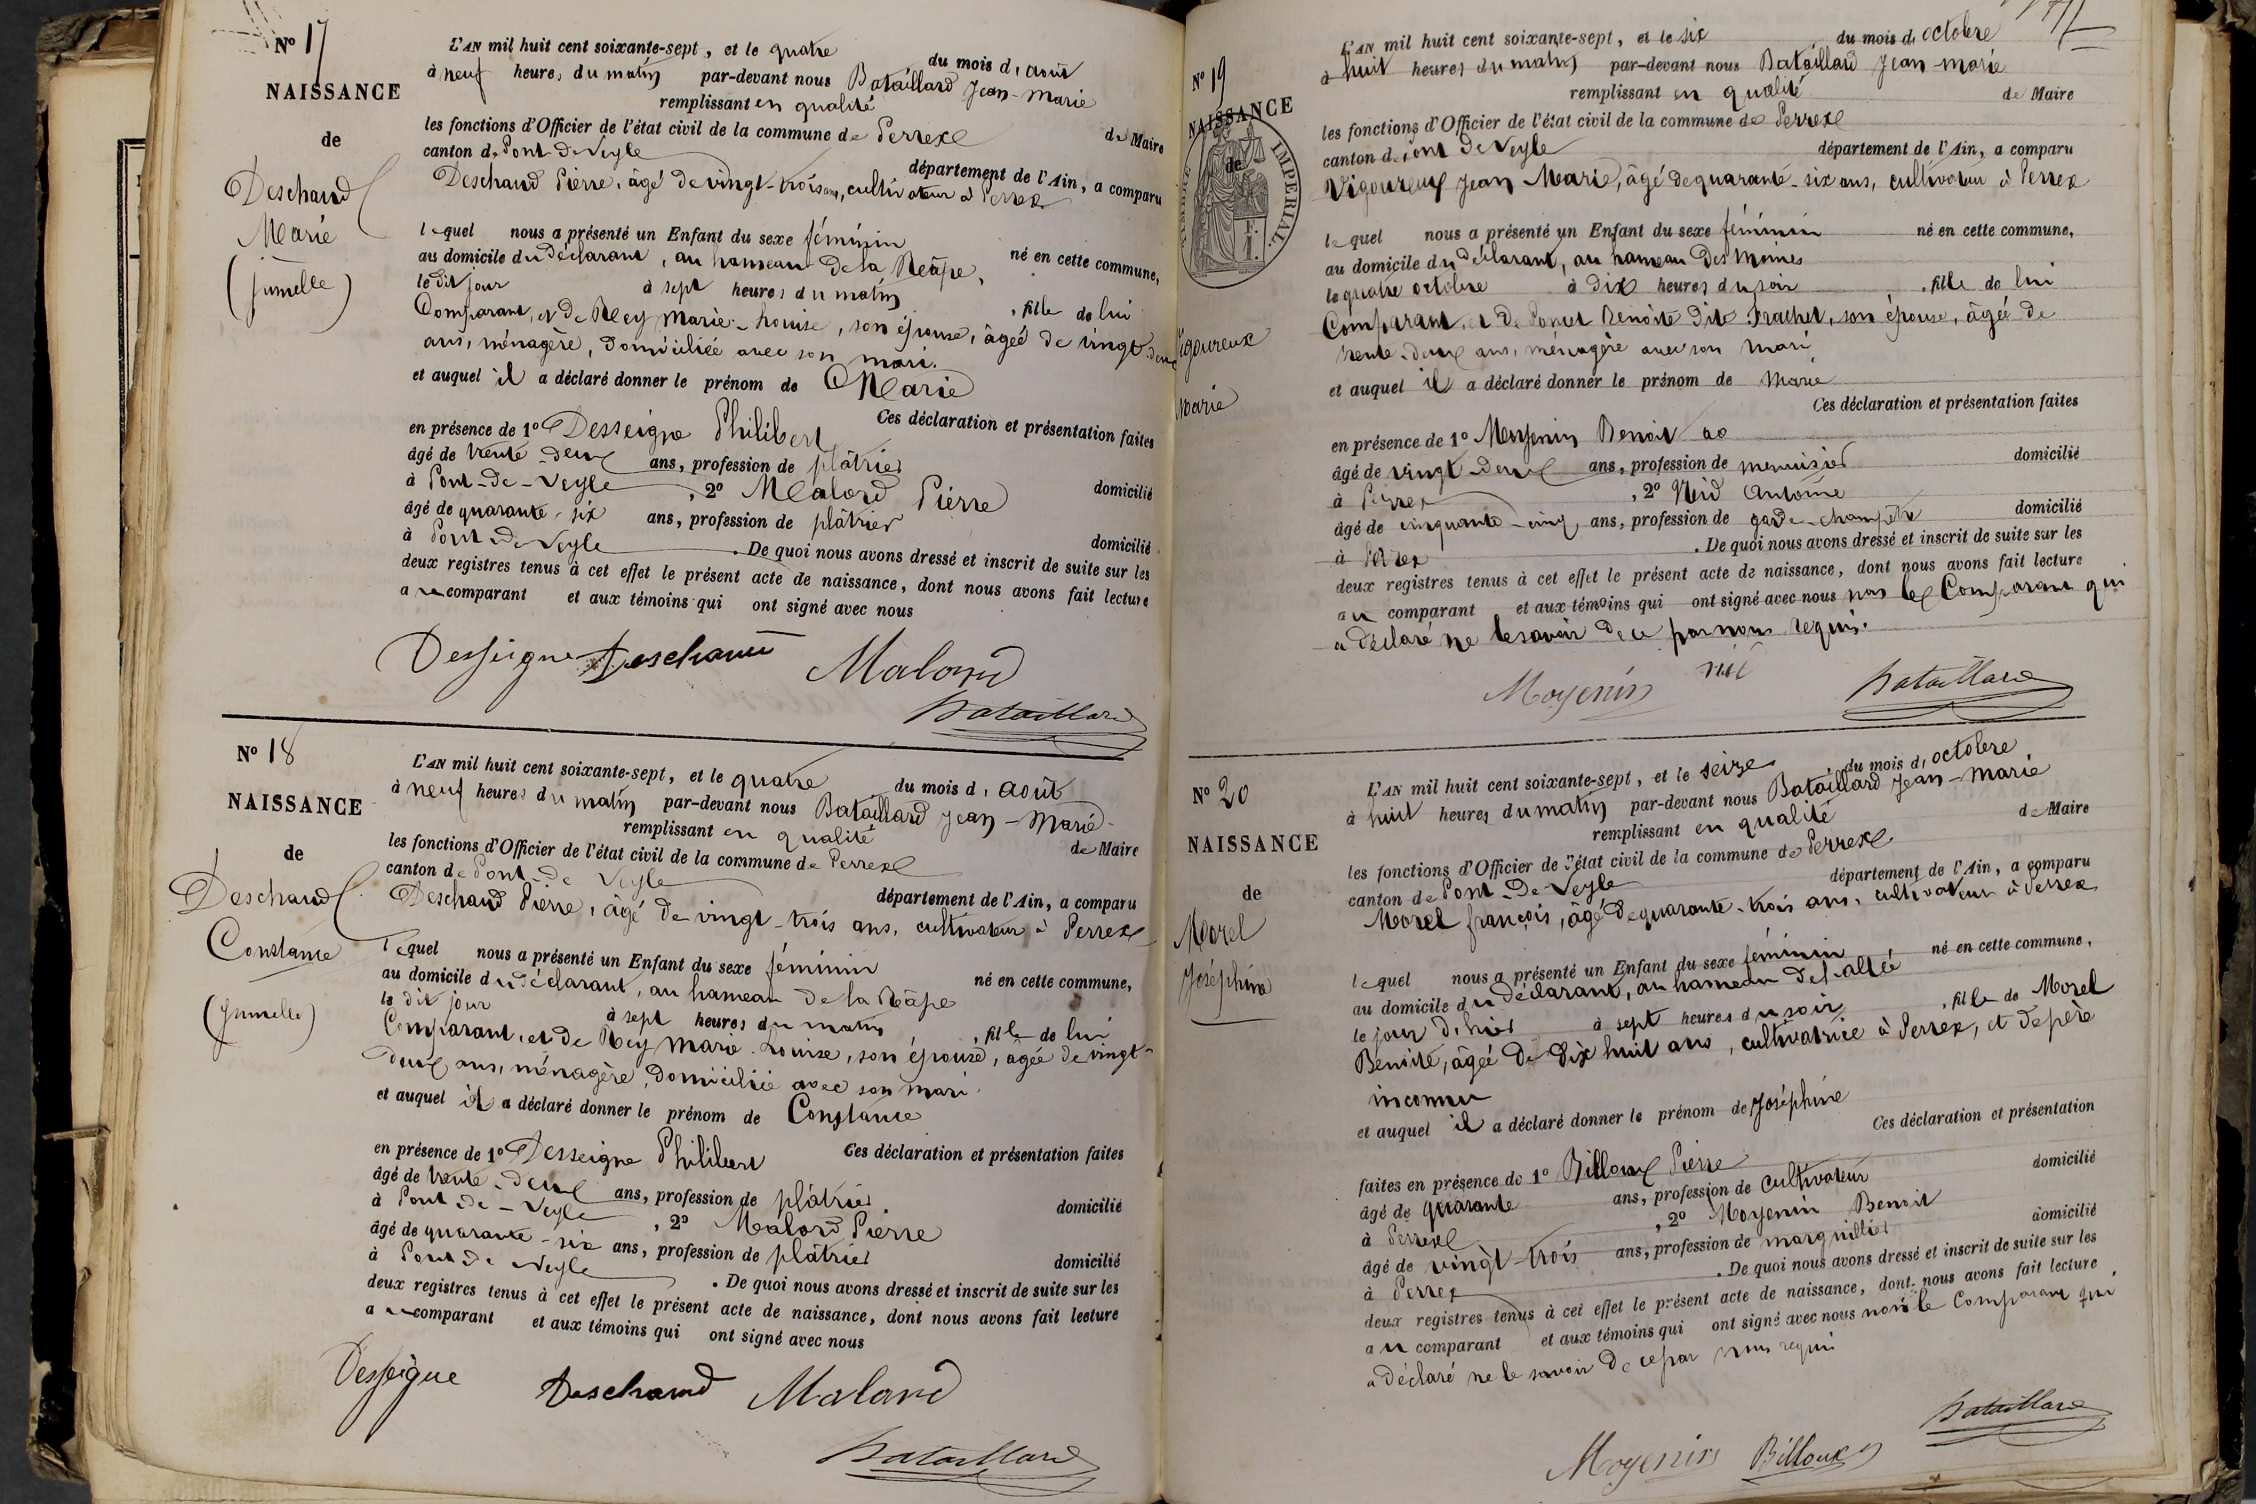 Nº 17
NAISSANCE
de
Deschaud
Marie
(jumelle)
L'AN mil huit cent soixante-sept, et le quatre du mois d'août
à neuf heures du matin par-devant nous Bataillard Jean-Marie
remplissant en qualité de Maire
les fonctions d'Officier de l'état civil de la commune de Perrex
canton de Pont-de-Veyle département de l'Ain, a comparu
Deschaud Pierre, âgé de vingt-trois ans, cultivateur à Perrex
lequel nous a présenté un Enfant du sexe féminin né en cette commune,
au domicile du déclarant, au hameau de la
le dit jour à sept heures du matin, fille de lui
Comparant, et de Rey Marie-Louise, son épouse, âgée de vingt-deux
ans, ménagère, domiciliée avec son mari.
et auquel il a déclaré donner le prénom de Marie
Ces déclaration et présentation faites
en présence de 1º Desseigne Philibert
âgé de trente-deux ans, profession de plâtrier domicilié
à Pont-de-Veyle, 2º Malord Pierre
âgé de quarante-six ans, profession de plâtrier domicilié
à Pont-de-Veyle. De quoi nous avons dressé et inscrit de suite sur les
deux registres tenus à cet effet le présent acte de naissance, dont nous avons fait lecture
au comparant et aux témoins qui ont signé avec nous
Desseigne Deschaud Malord
Bataillard
Nº 18
NAISSANCE
de
Deschaud
Constance
(jumelle)
L'AN mil huit cent soixante-sept, et le quatre du mois d'août
à neuf heures du matin par-devant nous Bataillard Jean-Marie
remplissant en qualité de Maire
les fonctions d'Officier de l'état civil de la commune de Perrex
canton de Pont-de-Veyle département de l'Ain, a comparu
Deschaud Pierre, âgé de vingt-trois ans, cultivateur à Perrex
lequel nous a présenté un Enfant du sexe féminin né en cette commune,
au domicile du déclarant, au hameau de la
le dit jour à sept heures du matin, fille de lui
Comparant, et de Rey Marie-Louise, son épouse, âgée de vingt-
deux ans, ménagère, domiciliée avec son mari.
et auquel il a déclaré donner le prénom de Constance
Ces déclaration et présentation faites
en présence de 1º Desseigne Philibert
âgé de trente-deux ans, profession de plâtrier domicilié
à Pont-de-Veyle, 2º Malord Pierre
âgé de quarante-six ans, profession de plâtrier domicilié
à Pont-de-Veyle. De quoi nous avons dressé et inscrit de suite sur les
deux registres tenus à cet effet le présent acte de naissance, dont nous avons fait lecture
au comparant et aux témoins qui ont signé avec nous
Desseigne Deschaud Malord
Bataillard
Nº 19
NAISSANCE
de
TIMBRE IMPERIAL.
Vigoureux
Marie
L'AN mil huit cent soixante-sept, et le six du mois d'octobre
à huit heures du matin par-devant nous Bataillard Jean-Marie
remplissant en qualité de Maire
les fonctions d'Officier de l'état civil de la commune de Perrex
canton de Pont de Veyle département de l'Ain, a comparu
Vigoureux Jean Marie, âgé de quarante-six ans, cultivateur à Perrex
lequel nous a présenté un Enfant du sexe féminin né en cette commune,
au domicile du déclarant, au hameau des Moines
le quatre octobre à dix heures du soir, fille de lui
Comparant, et de Poncet Benoîte dite Frachet, son épouse, âgée de
trente-deux ans, ménagère avec son mari
et auquel il a déclaré donner le prénom de Marie
Ces déclaration et présentation faites
en présence de 1º Moyenin Benoit
âgé de vingt-deux ans, profession de menuisier domicilié
à Perrex, 2º Nid Antoine
âgé de cinquante-cinq ans, profession de garde-champêtre domicilié
à Perrex. De quoi nous avons dressé et inscrit de suite sur les
deux registres tenus à cet effet le présent acte de naissance, dont nous avons fait lecture
au comparant et aux témoins qui ont signé avec nous non le Comparant qui
a déclaré ne le savoir de ce par nous requis.
Moyenin Nid Bataillard
Nº 20
NAISSANCE
de
Morel
Joséphine
L'AN mil huit cent soixante-sept, et le seize du mois d'octobre
à huit heures du matin par-devant nous Bataillard Jean-Marie
remplissant en qualité de Maire
les fonctions d'Officier de l'état civil de la commune de Perrex
canton de Pont-de-Veyle département de l'Ain, a comparu
Morel françois, âgé de quarante-trois ans, cultivateur à Perrex
lequel nous a présenté un Enfant du sexe féminin né en cette commune,
au domicile du déclarant, au hameau de
le jour d'hier à sept heures du soir, fille de Morel
Benoite, âgée de dix huit ans, cultivatrice à Perrex, et de père
inconnu
et auquel il a déclaré donner le prénom de Joséphine
Ces déclaration et présentation
faites en présence de 1º Billoux Pierre
âgé de quarante ans, profession de cultivateur domicilié
à Perrex, 2º Moyenin Benoit
âgé de vingt-trois ans, profession de marguillier domicilié
à Perrex. De quoi nous avons dressé et inscrit de suite sur les
deux registres tenus à cet effet le présent acte de naissance, dont nous avons fait lecture
au comparant et aux témoins qui ont signé avec nous non le Comparant qui
a déclaré ne le savoir de ce par nous requis
Bataillard
Moyenin Billoux